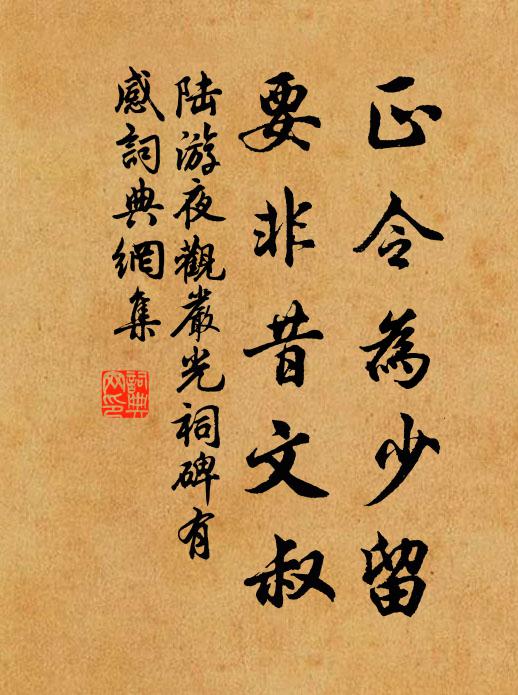 正令為少留
要非昔文叔
陆游夜觀嚴光祠碑有
感詞典網集
詞典
网印